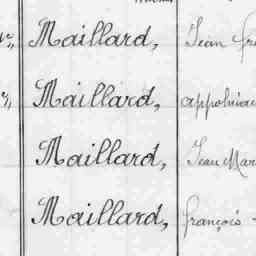 Maillard, Jean
Maillard, appolnia
Maillard, Jean Mar
Maillard, françois